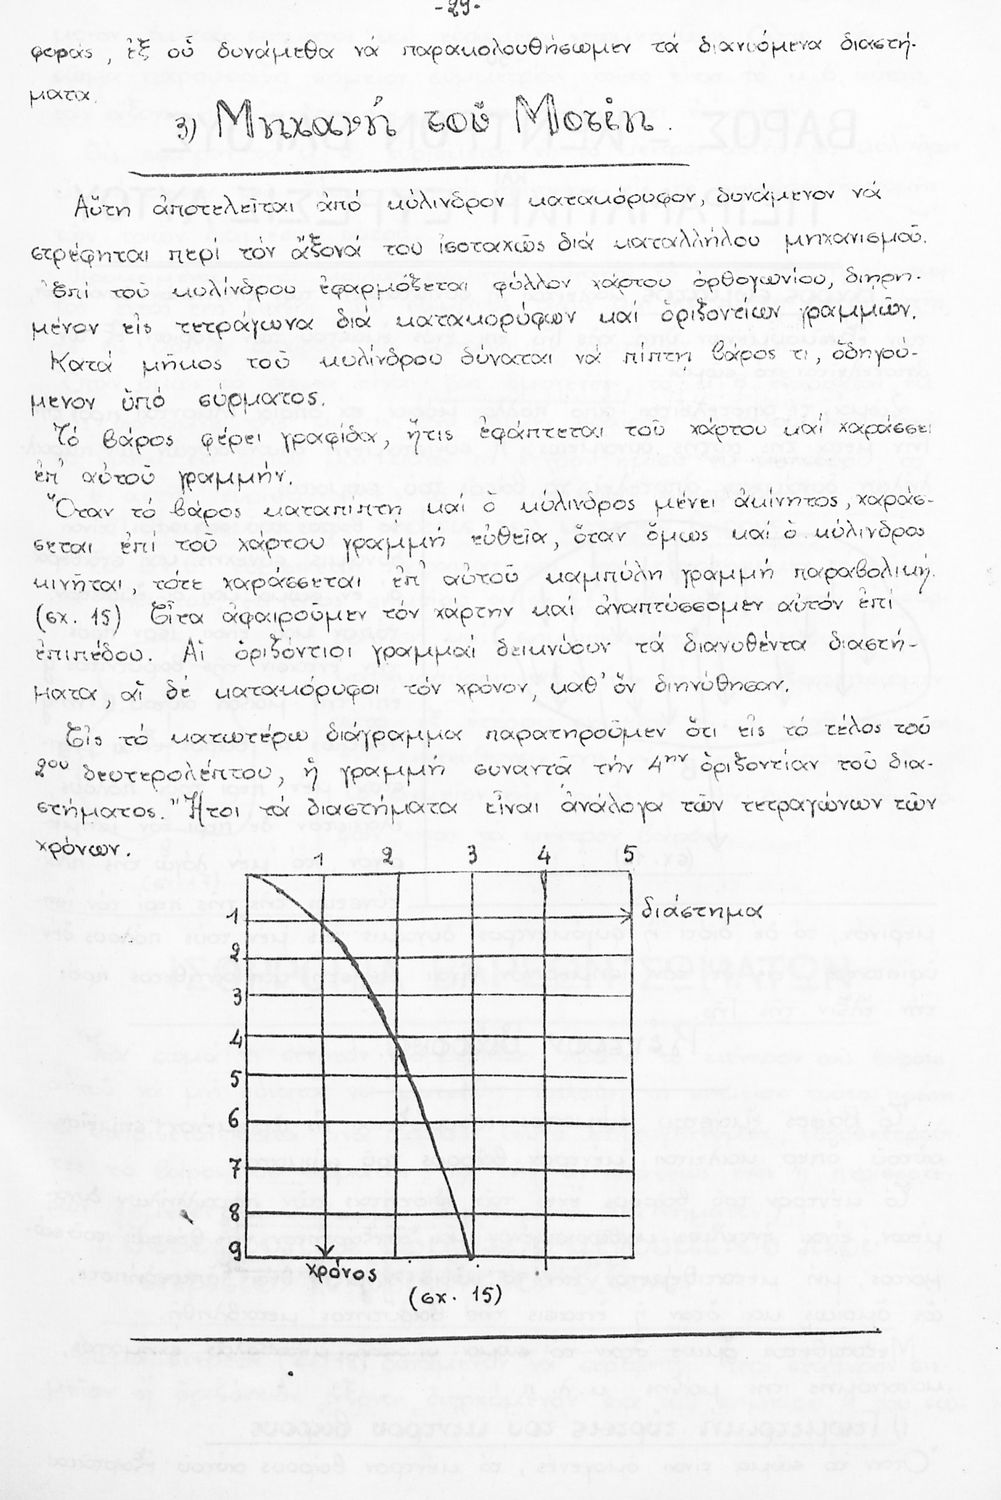 -29-
φοράς, ἐξ οὗ δυνάμεθα νά παρακολουθήσωμεν τά διανυόμενα διαστή-
ματα.
3) Μηχανή τοῦ Μοτέν.
Αὕτη ἀποτελεῖται ἀπό κύλινδρον κατακόρυφον, δυνάμενον νά
στρέφηται περί τόν ἄξονά του ἰσοταχῶς διά καταλλήλου μηχανισμοῦ.
Ἐπί τοῦ κυλίνδρου ἐφαρμόζεται φύλλον χάρτου ὀρθογωνίου, διηρη-
μένον εἰς τετράγωνα διά κατακορύφων καί ὁριζοντείων γραμμῶν.
Κατά μῆκος τοῦ κυλίνδρου δύναται νά πίπτη βάρος τι, ὁδηγού-
μενον ὑπό σύρματος.
Τό βάρος φέρει γραφίδα, ἥτις ἐφάπτεται τοῦ χάρτου καί χαράσσει
ἐπ' αὐτοῦ γραμμήν.
Ὅταν τό βάρος καταπίπτη καί ὁ κύλινδρος μένει ἀκίνητος, χαράσ-
σεται ἐπί τοῦ χάρτου γραμμή εὐθεῖα, ὅταν ὅμως καί ὁ κύλινδρος
κινῆται, τότε χαράσσεται ἐπ' αὐτοῦ καμπύλη γραμμή παραβολική.
(σχ. 15) Εἶτα ἀφαιροῦμεν τόν χάρτην καί ἀναπτύσσομεν αὐτόν ἐπί
ἐπιπέδου. Αἱ ὁριζόντιοι γραμμαί δεικνύουν τά διανυθέντα διαστή-
ματα, αἱ δέ κατακόρυφοι τόν χρόνον, καθ' ὅν διηνύθησαν.
Εἰς τό κατωτέρω διάγραμμα παρατηροῦμεν ὅτι εἰς τό τέλος τοῦ
2ου δευτερολέπτου, ἡ γραμμή συναντᾶ τήν 4ην ὁριζοντίαν τοῦ δια-
στήματος. Ἤτοι τά διαστήματα εἶναι ἀνάλογα τῶν τετραγώνων τῶν
χρόνων.
1 2 3 4 5
1
διάστημα
2
3
4
5
6
7
8
9
χρόνος
(σχ. 15)